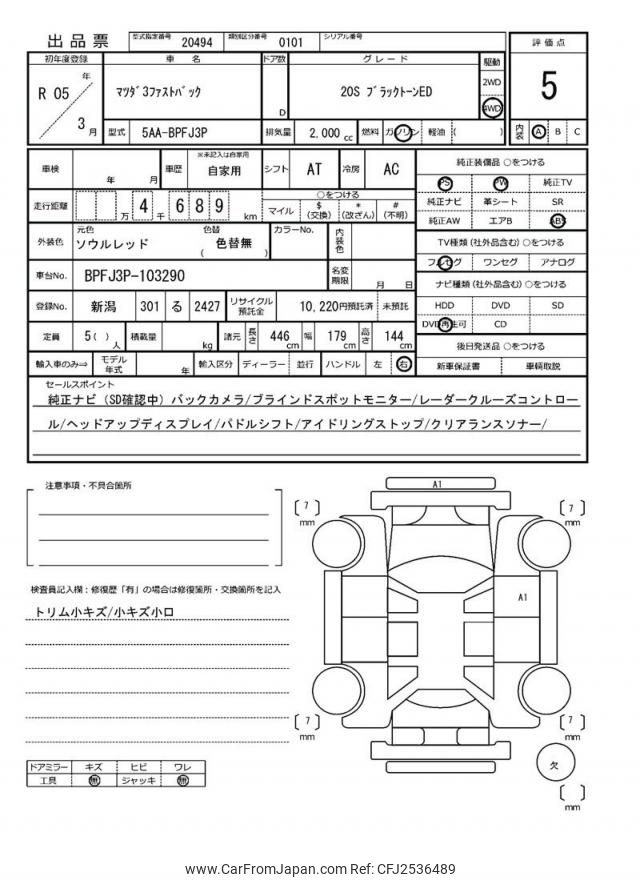 出品票 型式指定番号 20494 類別区分番号 0101 シリアル番号
評価点
5
初年度登録 車名 ドア数 グレード 駆動
R 05 年 3 月
マツダ3ファストバック D 20S ブラックトーンED
2WD
4WD
型式 5AA-BPFJ3P 排気量 2,000 cc 燃料 ガソリン 軽油 ( )
内装 A B C
車検 年 月 車歴 ※未記入は自家用 自家用 シフト AT 冷房 AC
走行距離 万 4 千 6 8 9 km
○をつける
マイル $(交換) *(改ざん) #(不明)
外装色 元色 ソウルレッド 色替 ( 色替無 ) カラーNo. 内装色
車台No. BPFJ3P-103290 名変期限 月 日
登録No. 新潟 301 る 2427 リサイクル預託金 10,220円預託済 未預託
定員 5( ) 人 積載量 kg 諸元 長さ 446 cm 幅 179 cm 高さ 144 cm
輸入車のみ⇒ モデル年式 年 輸入区分 ディーラー 並行 ハンドル 左 右
純正装備品 ○をつける
PS PW 純正TV
純正ナビ 革シート SR
純正AW エアB ABS
TV種類(社外品含む)○をつける
フルセグ ワンセグ アナログ
ナビ種類(社外品含む)○をつける
HDD DVD SD
DVD再生可 CD
後日発送品 ○をつける
新車保証書 車輌取説
セールスポイント
純正ナビ(SD確認中)バックカメラ/ブラインドスポットモニター/レーダークルーズコントロー
ル/ヘッドアップディスプレイ/パドルシフト/アイドリングストップ/クリアランスソナー/
注意事項・不具合箇所
検査員記入欄：修復歴「有」の場合は修復箇所・交換箇所を記入
トリム小キズ/小キズ小凹
ドアミラー キズ ヒビ ワレ
工具 無 ジャッキ 無
A1
[ 7 ] mm
[ 7 ] mm
A1
[ 7 ] mm
[ 7 ] mm
欠
[ ] mm
www.CarFromJapan.com Ref: CFJ2536489